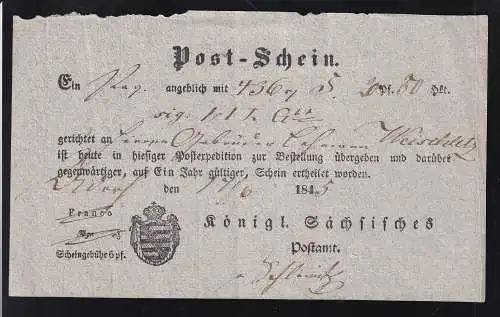 Post-Schein.
Ein Paq. angeblich mit 436 5. Pf. 30 Lt.
sig:
gerichtet an Herren Gebrüder Lehmann Weischlitz
ist heute in hiesiger Postexpedition zur Bestellung übergeben und darüber
gegenwärtiger, auf Ein Jahr gültiger, Schein ertheilet worden.
Adorf den 17/6 1845
Franco
Ngr
Scheingebühr 6 pf.
Königl. Sächsisches
Postamt.